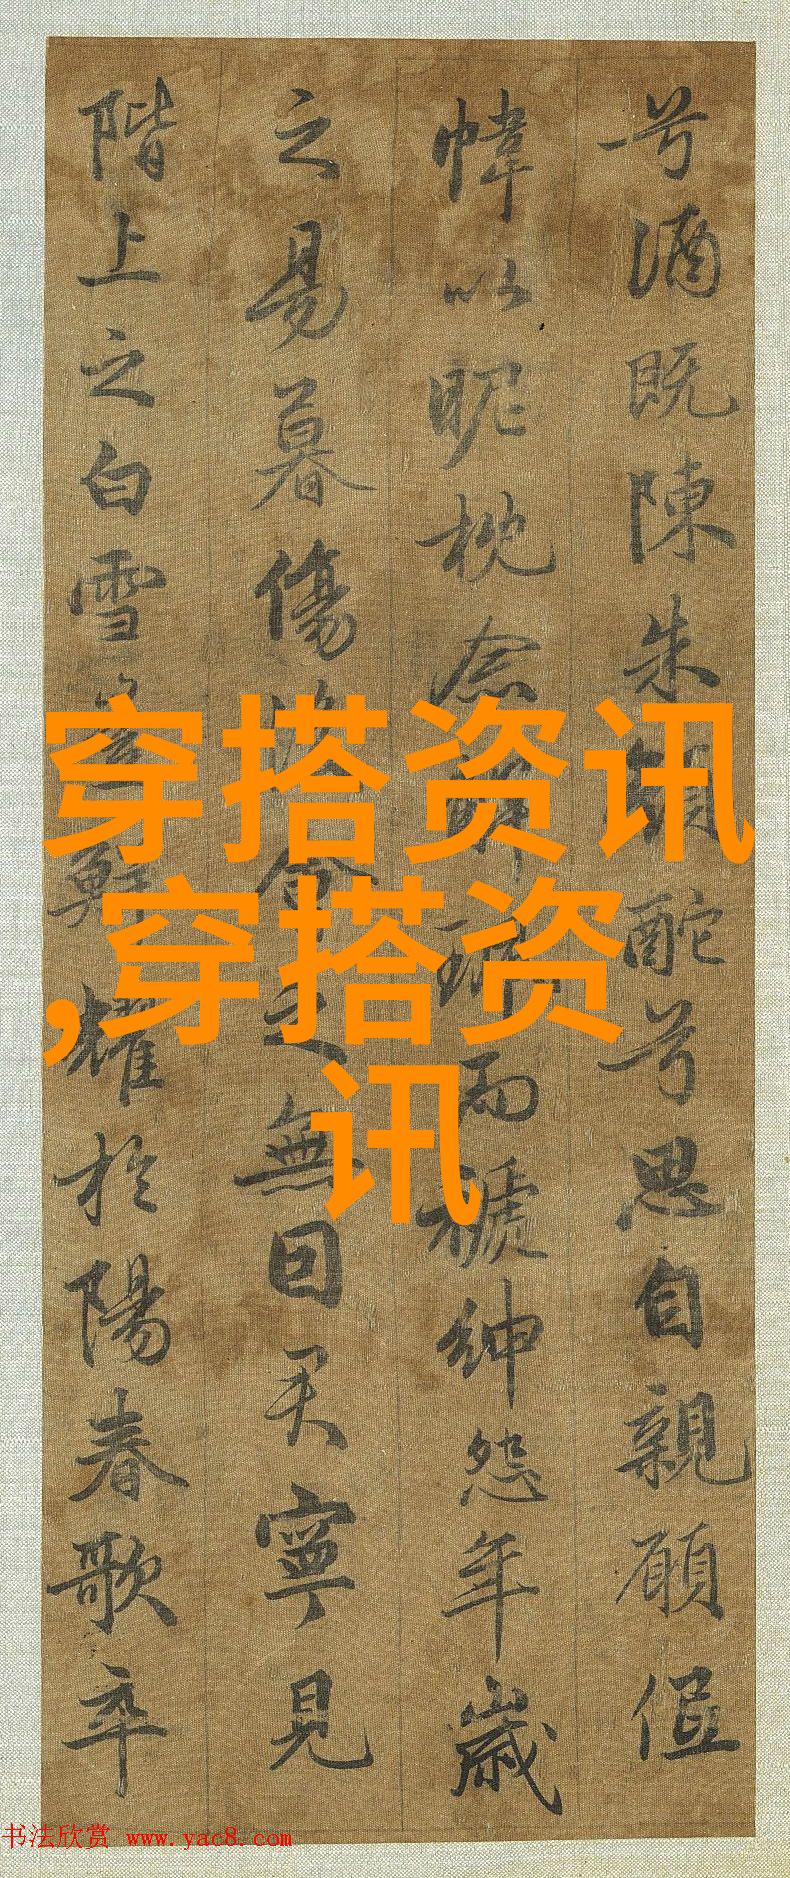 兮酒既陳朱酡兮思自親願低
幃以昵枕念而褫紳怨年歲
之易暮傷之無因君寧見
階上之白雪鮮耀於陽春歌卒
穿搭资讯
,穿搭资
讯
书法欣赏 www.yac8.com